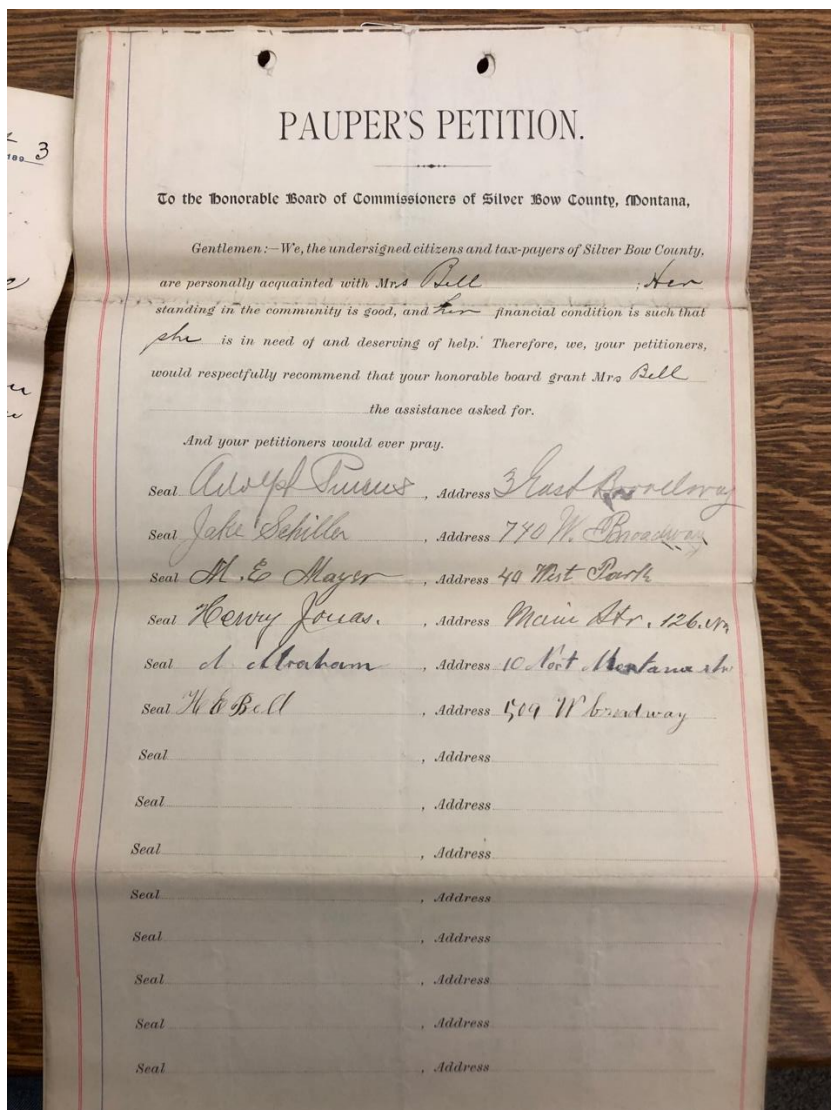 189 3
PAUPER'S PETITION.
To the Honorable Board of Commissioners of Silver Bow County, Montana,
Gentlemen:—We, the undersigned citizens and tax-payers of Silver Bow County,
are personally acquainted with Mrs Bell ; Her
standing in the community is good, and her financial condition is such that
she is in need of and deserving of help. Therefore, we, your petitioners,
would respectfully recommend that your honorable board grant Mrs Bell
the assistance asked for.
And your petitioners would ever pray.
Seal Adolph Pincus , Address 3 East Broadway
Seal Jake Schiller , Address 740 W. Broadway
Seal M. E Mayer , Address 40 West Park
Seal Henry Jonas. , Address Main Str. 126. No
Seal A. Abraham , Address 10 Nort Montana str
Seal H E Bell , Address 509 W broadway
Seal , Address
Seal , Address
Seal , Address
Seal , Address
Seal , Address
Seal , Address
Seal , Address
Seal , Address